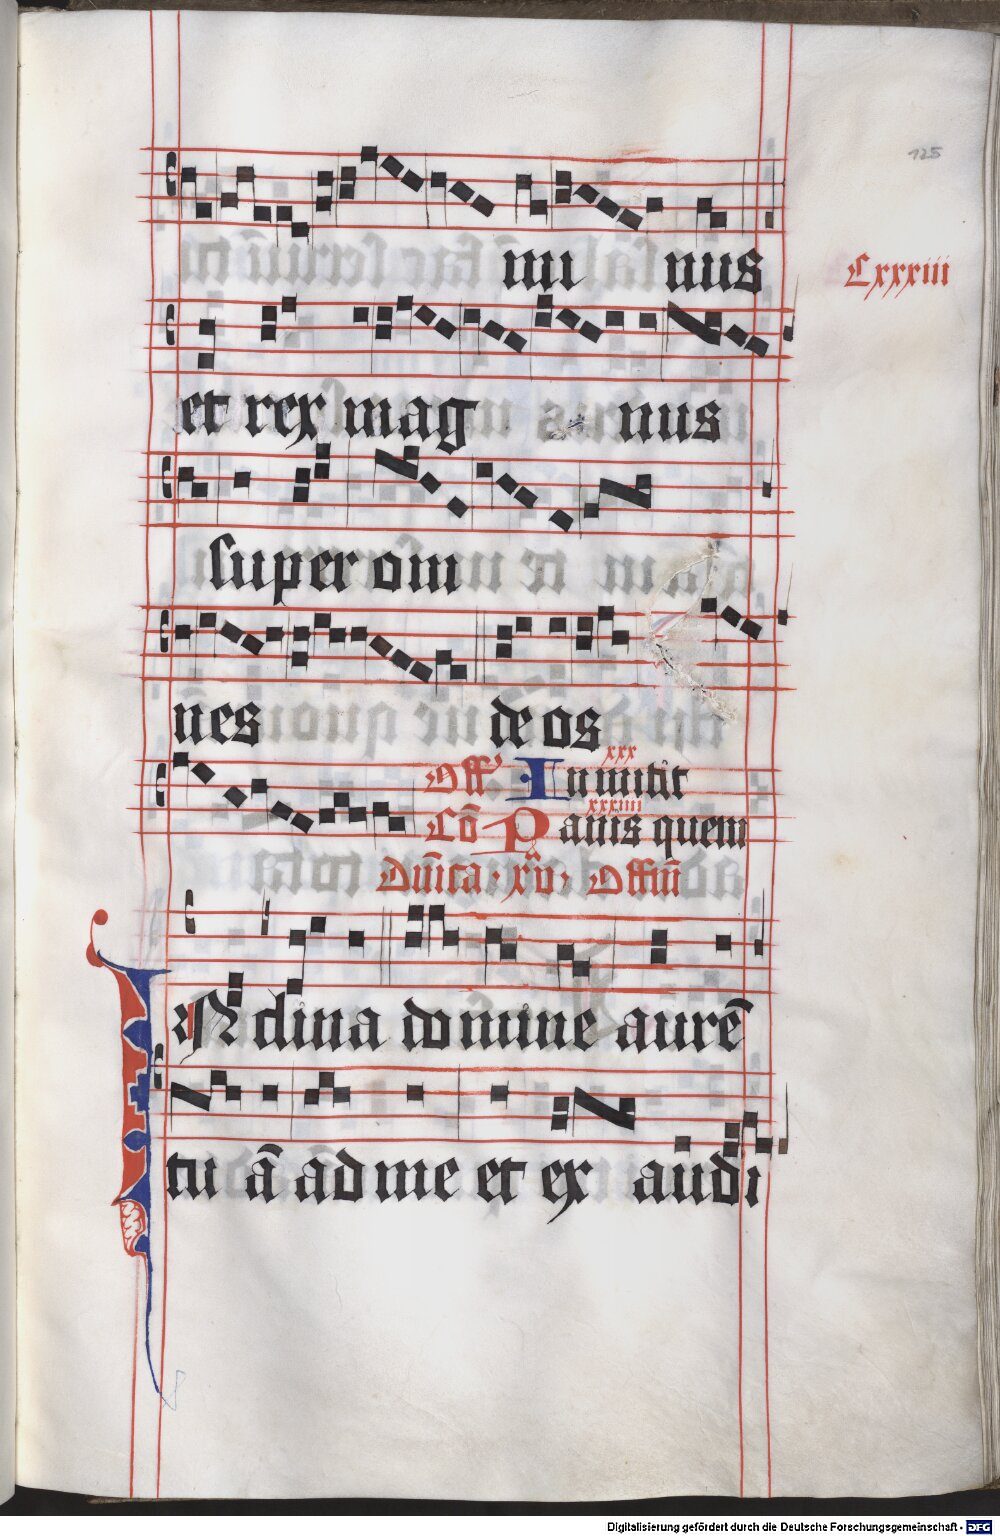 125
mi nus
Cxxxiii
et rex mag nus
super om
nes de os
xxx
Off Inmitit
xxxiiii
Cō Panis quem
Dn̄ica · xv · Offm̄
INclina domine aurē
tu ā ad me et ex audi
Digitalisierung gefördert durch die Deutsche Forschungsgemeinschaft - DFG